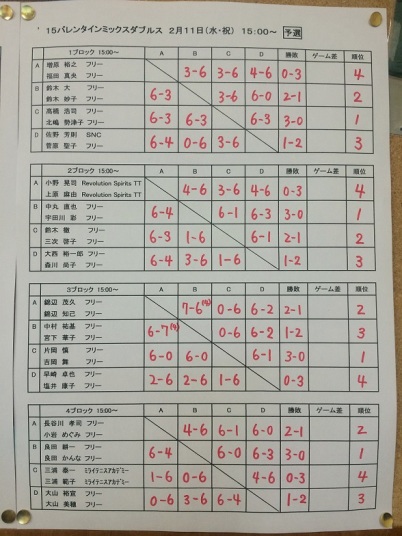 '15バレンタインミックスダブルス 2月11日(水・祝) 15:00～ 予選
1ブロック 15:00～ A B C D 勝敗 ゲーム差 順位
A 増原 裕之 フリー
福田 真央 フリー
3-6 3-6 4-6 0-3 4
B 鈴木 大 フリー
鈴木 妙子 フリー
6-3 3-6 6-0 2-1 2
C 高橋 浩司 フリー
北嶋 勢津子 フリー
6-3 6-3 6-3 3-0 1
D 佐野 芳則 SNC
菅原 聖子 フリー
6-4 0-6 3-6 1-2 3
2ブロック 15:00～ A B C D 勝敗 ゲーム差 順位
A 小野 晃司 Revolution Spirits TT
上原 麻由 Revolution Spirits TT
4-6 3-6 4-6 0-3 4
B 中丸 直也 フリー
宇田川 彩 フリー
6-4 6-1 6-3 3-0 1
C 鈴木 徹 フリー
三次 啓子 フリー
6-3 1-6 6-1 2-1 2
D 大西 裕一郎 フリー
森川 尚子 フリー
6-4 3-6 1-6 1-2 3
3ブロック 15:00～ A B C D 勝敗 ゲーム差 順位
A 鶴辺 茂久 フリー
鶴辺 知己 フリー
7-6 0-6 6-2 2-1 2
B 中村 祐基 フリー
宮下 華子 フリー
6-7 0-6 6-2 1-2 3
C 片岡 慎 フリー
吉岡 舞 フリー
6-0 6-0 6-1 3-0 1
D 早崎 卓也 フリー
塩井 康子 フリー
2-6 2-6 1-6 0-3 4
4ブロック 15:00～ A B C D 勝敗 ゲーム差 順位
A 長谷川 孝司 フリー
小岩 めぐみ フリー
4-6 6-1 6-0 2-1 2
B 良田 耕一 フリー
良田 かんな フリー
6-4 6-0 6-3 3-0 1
C 三浦 泰一 ミライテニスアカデミー
三浦 範子 ミライテニスアカデミー
1-6 0-6 4-6 0-3 4
D 大山 裕宣 フリー
大山 美穂 フリー
0-6 3-6 6-4 1-2 3